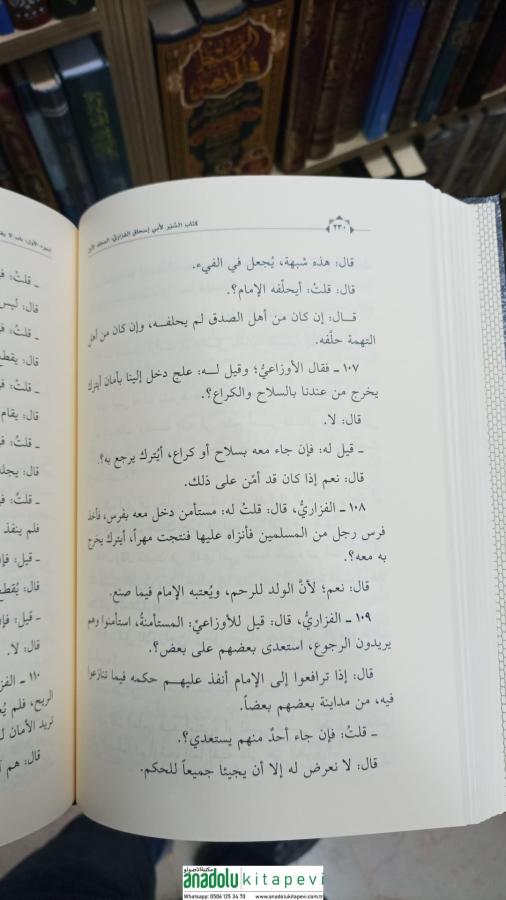 كتاب السِّيَر لأبي إسحاق الفزاري، المجلد الأول
٢٣٠
قال: هذه شبهة، يُجعل في الفيء.
قال: قلتُ: أيحلّفه الإمام؟.
قال: إن كان من أهل الصدق لم يحلفه، وإن كان من أهل
التهمة حلّفه.
١٠٧ ـ فقال الأوزاعيُّ؛ وقيل له: علج دخل إلينا بأمان أيترك
يخرج من عندنا بالسلاح والكراع؟.
قال: لا.
ـ قيل له: فإن جاء معه بسلاح أو كراع، أيُترك يرجع به؟.
قال: نعم إذا كان قد أمّن على ذلك.
١٠٨ ـ الفزاريُّ، قال: قلتُ له: مستأمن دخل معه بفرس، فأخذ
فرس رجل من المسلمين فأنزاه عليها فنتجت مهراً، أيترك يخرج
به معه؟.
قال: نعم؛ لأنَّ الولد للرحم، ويُعتبه الإمام فيما صنع.
١٠٩ ـ الفزاريُّ، قال: قيل للأوزاعيِّ: المستأمنةُ، استأمنوا وهم
يريدون الرجوع، استعدى بعضهم على بعض؟.
قال: إذا ترافعوا إلى الإمام أنفذ عليهم حكمه فيما تنازعوا
فيه، من مداينة بعضهم بعضاً.
ـ قلتُ: فإن جاء أحدٌ منهم يستعدي؟.
قال: لا نعرض له إلا أن يجيئا جميعاً للحكم.
الجزء الأول: باب لا
ـ قلتُ:
قال: ليس
ـ قلتُ:
قال: يقطع
ـ قلتُ:
قال: يقام
ـ قلتُ:
قال: يجلد
ـ قلتُ:
فلم ينفذ
ـ قيل:
قال: يُقطع
ـ قيل:
قال: لا.
١١٠ ـ
الريح، فلم
نريد الأمان
قال: هم
مكتبة اناضولو
anadolu kitapevi
Whatsapp: 0506 125 34 70
www.anadolukitapevi.com.tr